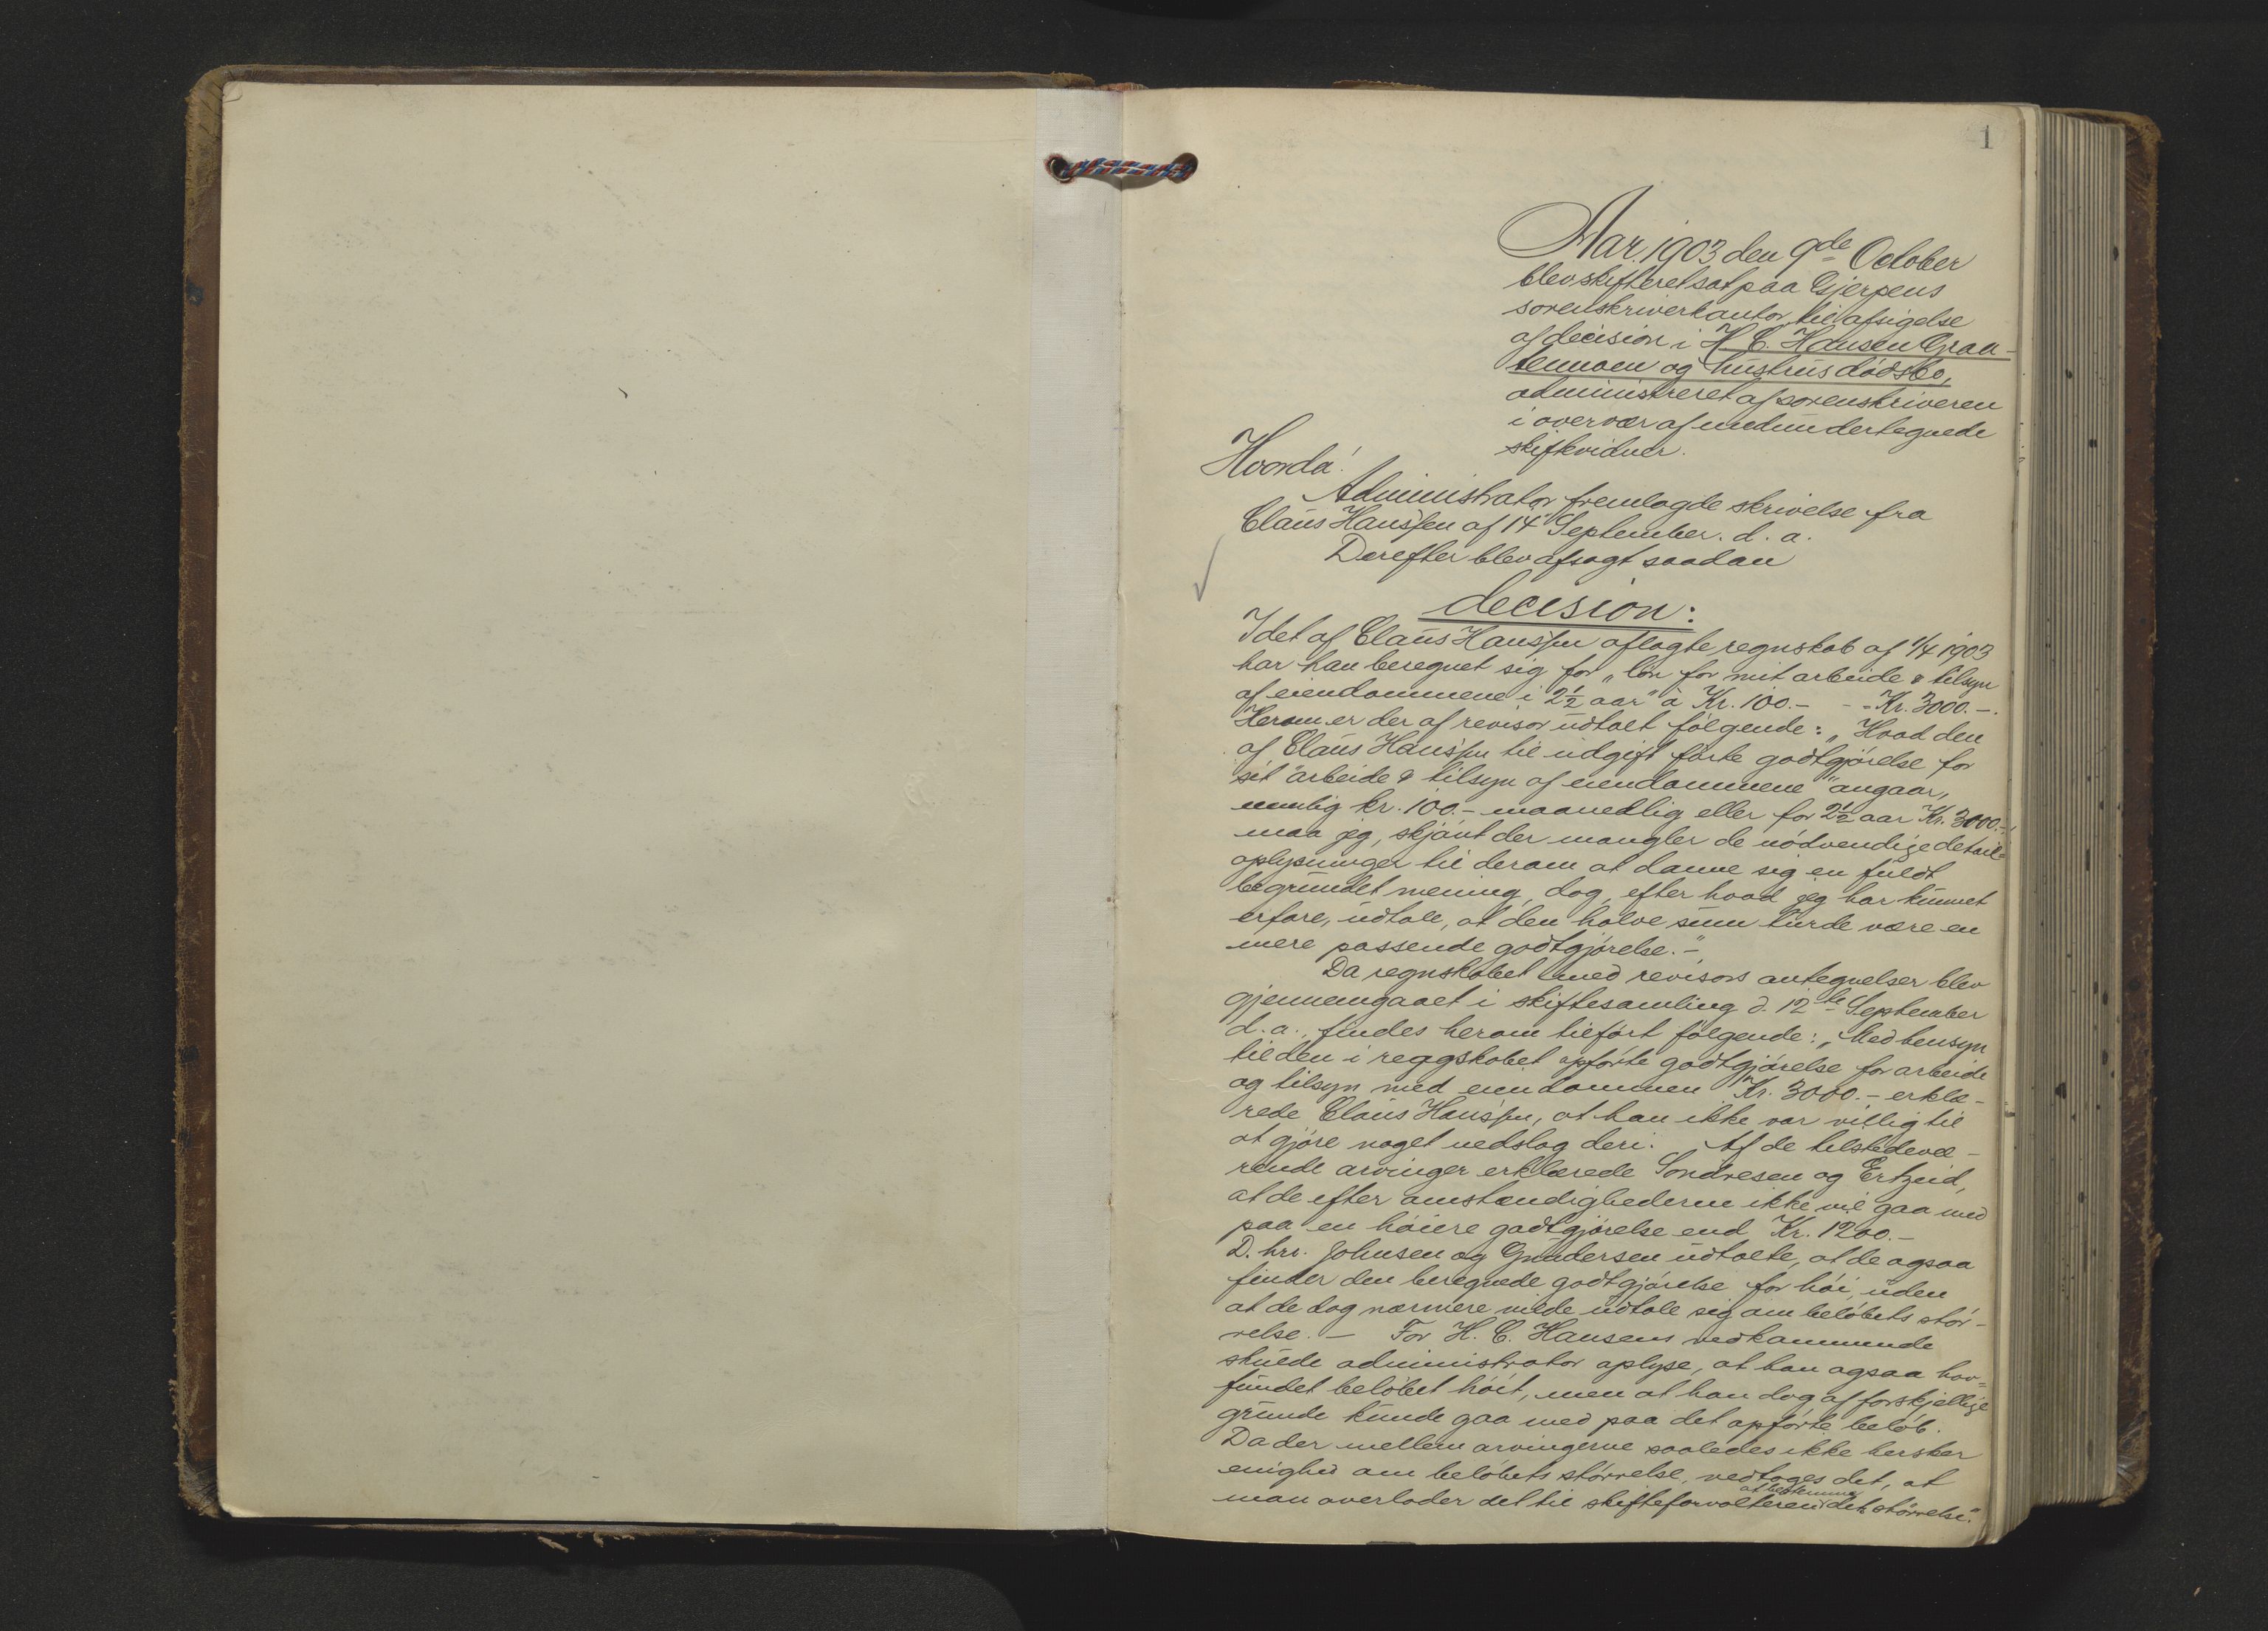 1
Aar 1903 den 9de October
blev skifteret sat paa Gjerpens
sorenskriverkontor til afsigelse
af decision i H. C. Hansen Graa-
tenmoen og hustrus dødsbo,
administreret af sorenskriveren
i overvær af medundertegnede
skiftevidner.
Hvorda!
Administrator fremlagde skrivelse fra
Claus Hanssen af 14 September d. a.
Derefter blev afsagt saadan
decision:
I det af Claus Hanssen aflagte regnskab af 1/4 1903
har han beregnet sig for „løn for mit arbeide & tilsyn
af eiendommene i 2½ aar" à Kr. 100.- - - Kr. 3000.-.
Herom er der af revisor udtalt følgende: „Hvad den
af Claus Hanssen til udgift førte godtgjørelse for
sit "arbeide & tilsyn af eiendommene" angaar,
nemlig kr. 100.- maanedlig eller for 2½ aar Kr. 3000.-,
maa jeg, skjønt der mangler de nødvendige detail-
oplysninger til derom at danne sig en fuldt
begrundet mening, dog, efter hvad jeg har kunnet
erfare, udtale, at den halve sum turde være en
mere passende godtgjørelse.-"
Da regnskabet med revisors antegnelser blev
gjennemgaaet i skiftesamling d. 12te September
d. a., findes herom tilført følgende: „Med hensyn
til den i reggskabet opførte godtgjørelse for arbeide
og tilsyn med eiendommen Kr. 3000.- erklæ-
rede Claus Hanssen, at han ikke var villig til
at gjøre noget nedslag deri. Af de tilstedevæ-
rende arvinger erklærede Sondresen og Ertzeid,
at de efter omstændighederne ikke vil gaa med
paa en høiere godtgjørelse end Kr. 1200.-
D. hrr. Johnsen og Gundersen udtalte, at de ogsaa
finder den beregnede godtgjørelse for høi, uden
at de dog nærmere vilde udtale sig om beløbets stør-
relse. - For H. C. Hansens vedkommende
skulde administrator oplyse, at han ogsaa hav-
fundet beløbet høit, men at han dog af forskjellige
grunde kunde gaa med paa det opførte beløb.
Da der mellem arvingerne saaledes ikke hersker
enighed om beløbets størrelse, vedtoges det, at
man overlader det til skifteforvalteren at bestemme dets størrelse."